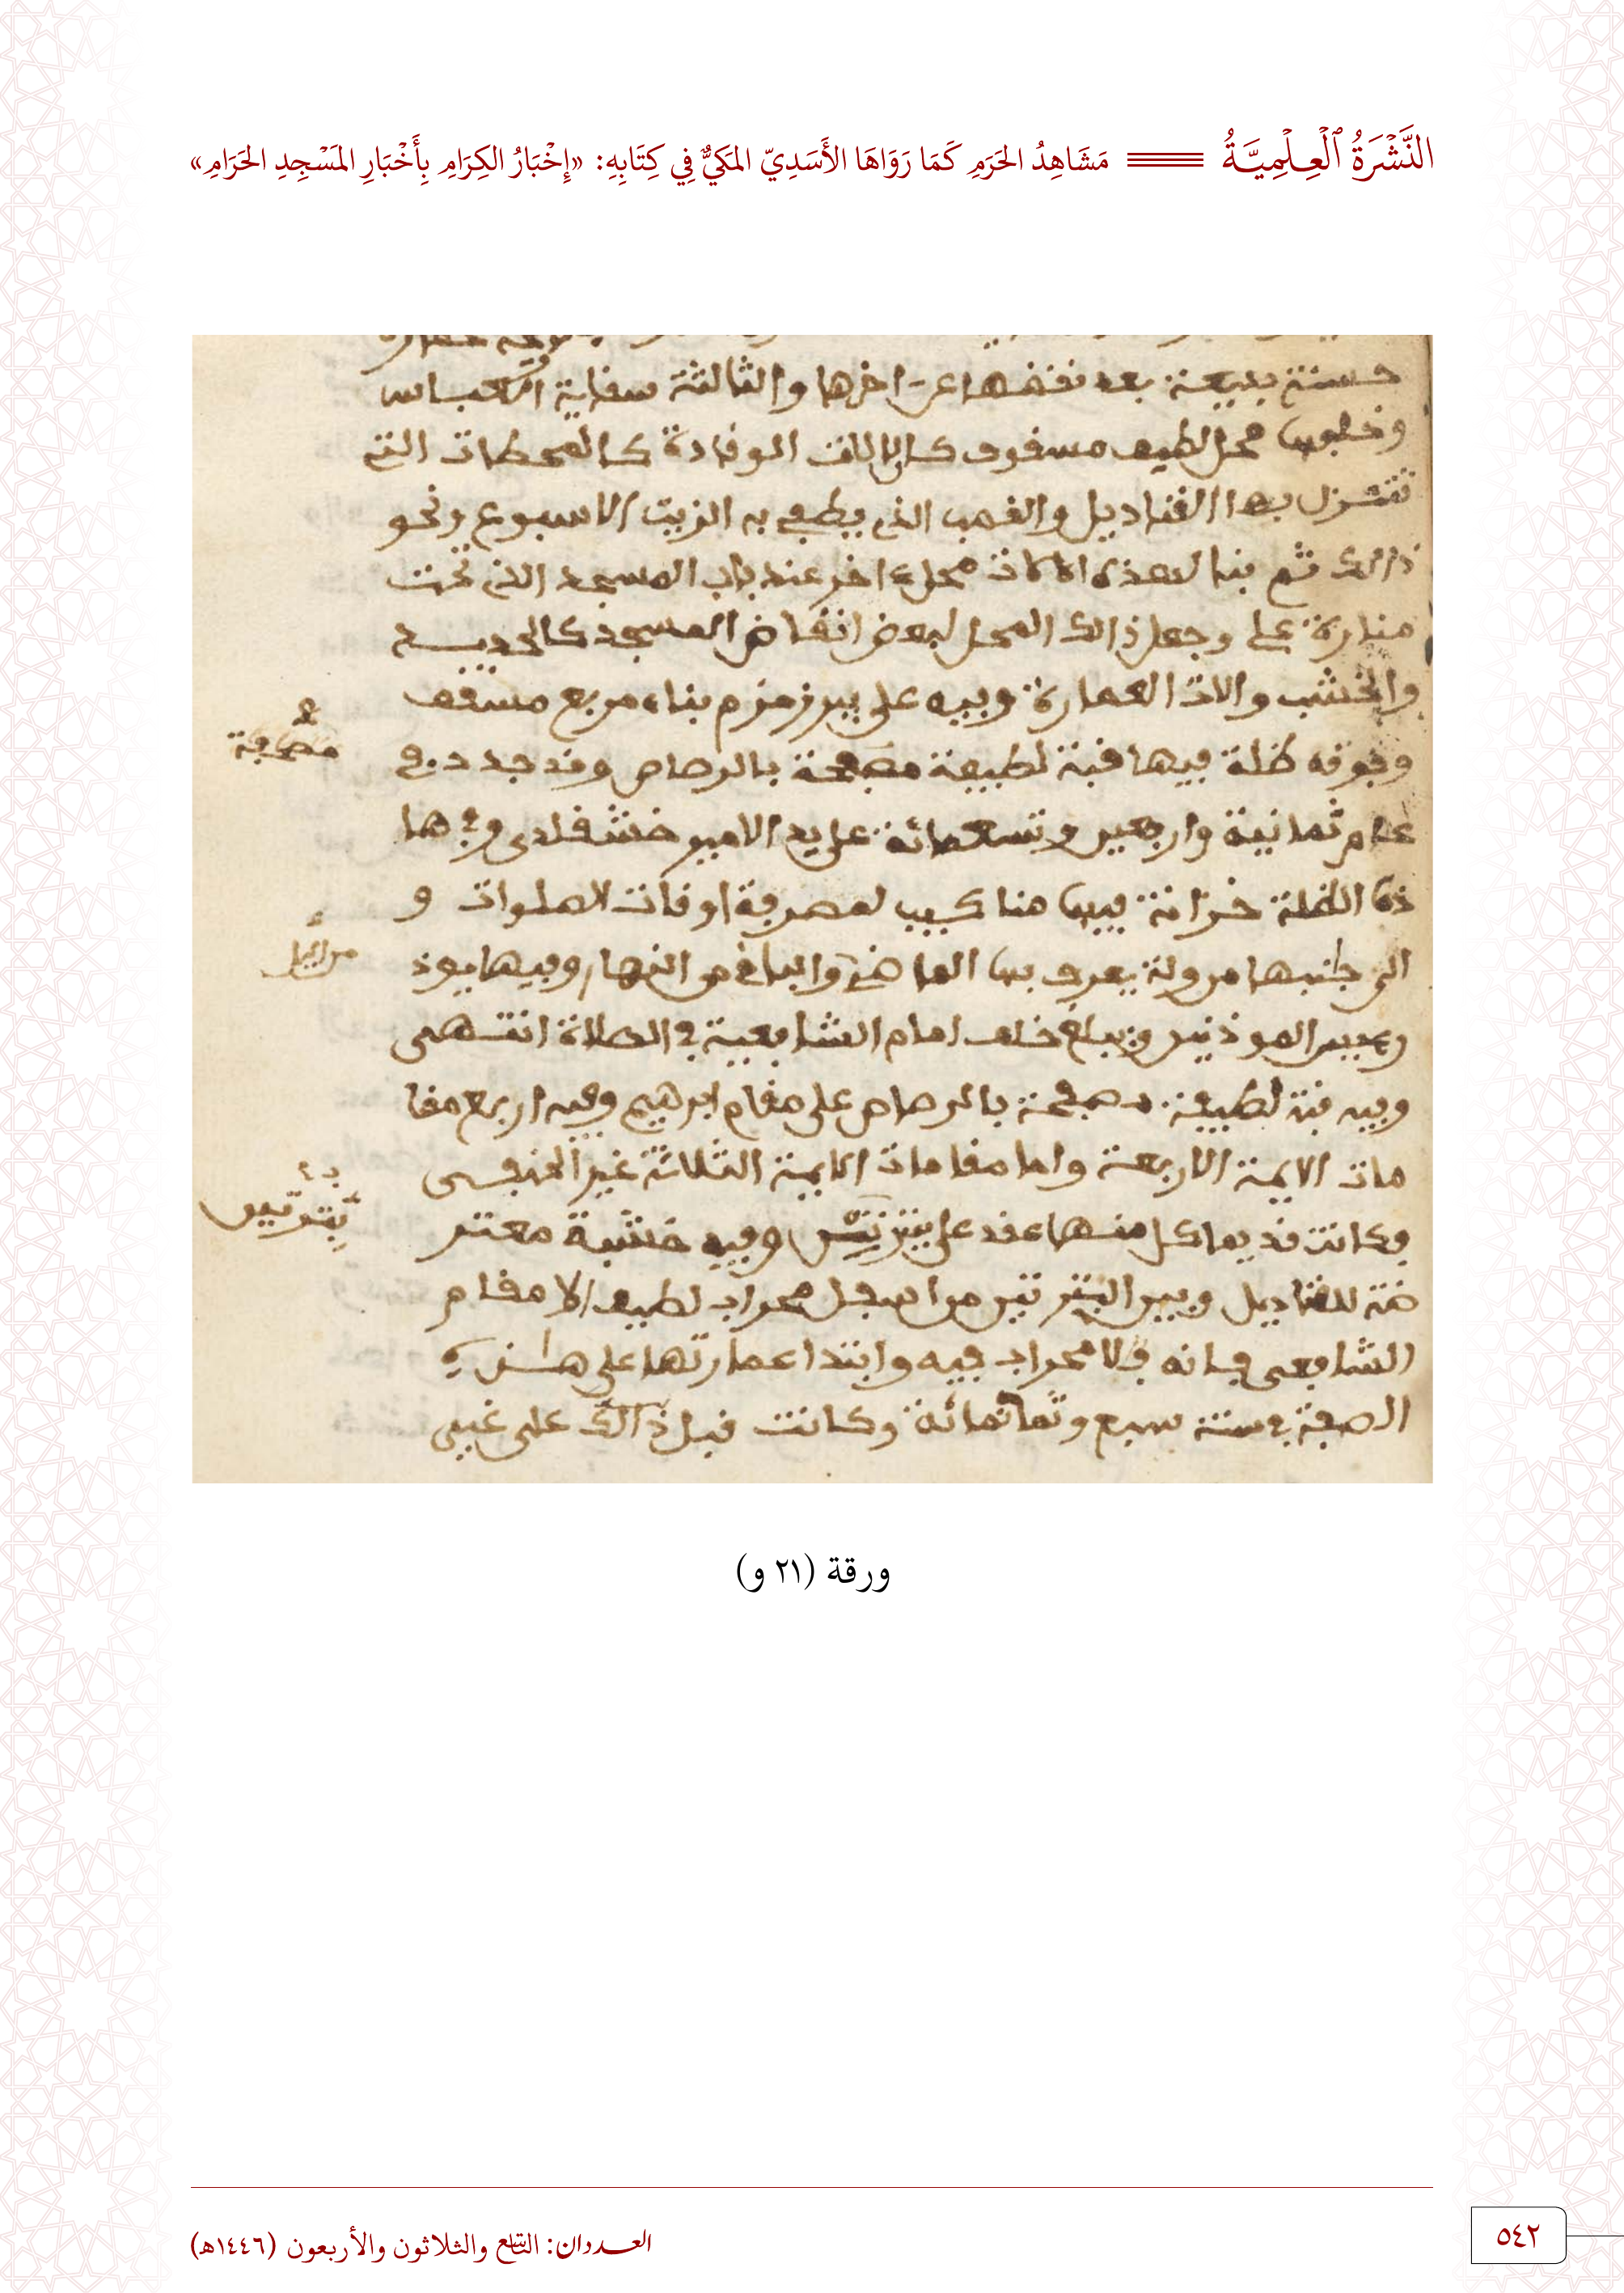 النَّشْرَةُ الْعِلْمِيَّةُ مَشَاهِدُ الحَرَمِ كَمَا رَوَاهَا الأَسَدِيّ المَكيٌّ فِي كِتَابِهِ: «إِخْبَارُ الكِرَامِ بِأَخْبَارِ المَسْجِدِ الحَرَامِ»
حسنة بديعة بعد نقضها عن اخرها والثالثة سقاية العباس
وخلفها محل لطيف مسقوف كالالات الوقادة كالمحطات التي
تتنزل بها القناديل والقصب الذي يطفي به الزيت الاسبوع ونحو
ذالك ثم بنا لهذه الالات محلا اخر عند باب المسجد الذي تحت
منارة علي وجعل ذالك المحل لبعض انقاض المسجد كالحديد
والخشب والات العمارة وفيه على بير زمزم بناء مربع مسقف
وفوقه ظلة فيها قبة لطيفة مصفحة بالرصاص وقد جدد في
مصفحة
عام ثمانية واربعين وتسعمائة على يد الامير خشقلدي وفي ها
ذه الظلة خزانة فيها مناكيب لمعرفة اوقات الصلوات و
الى جنبها مزولة يعرف بها الماضي والباقي من النهار وفيها يوذ
رييس الموذنين ويبلغ خلف امام الشافعية في الصلاة انتهى
وفيه قبة لطيفة مصفحة بالرصاص على مقام ابرهيم وفيه اربع مقا
مات الايمة الاربعة واما مقامات الايمة الثلاثة غير الحنفي
فكانت قديما كل منها عقد على وفيه خشبة معتر
ضة للقناديل وبين من اسفل محراب لطيف الا مقام
الشافعي فانه لا محراب فيه وابتدا عمارتها على هذه
الصفة في سنة سبع وثمانمائة وكانت قبل ذالك على غير
ورقة (٢١ و)
العددان: التاسع والثلاثون والأربعون (١٤٤٦هـ)
٥٤٢